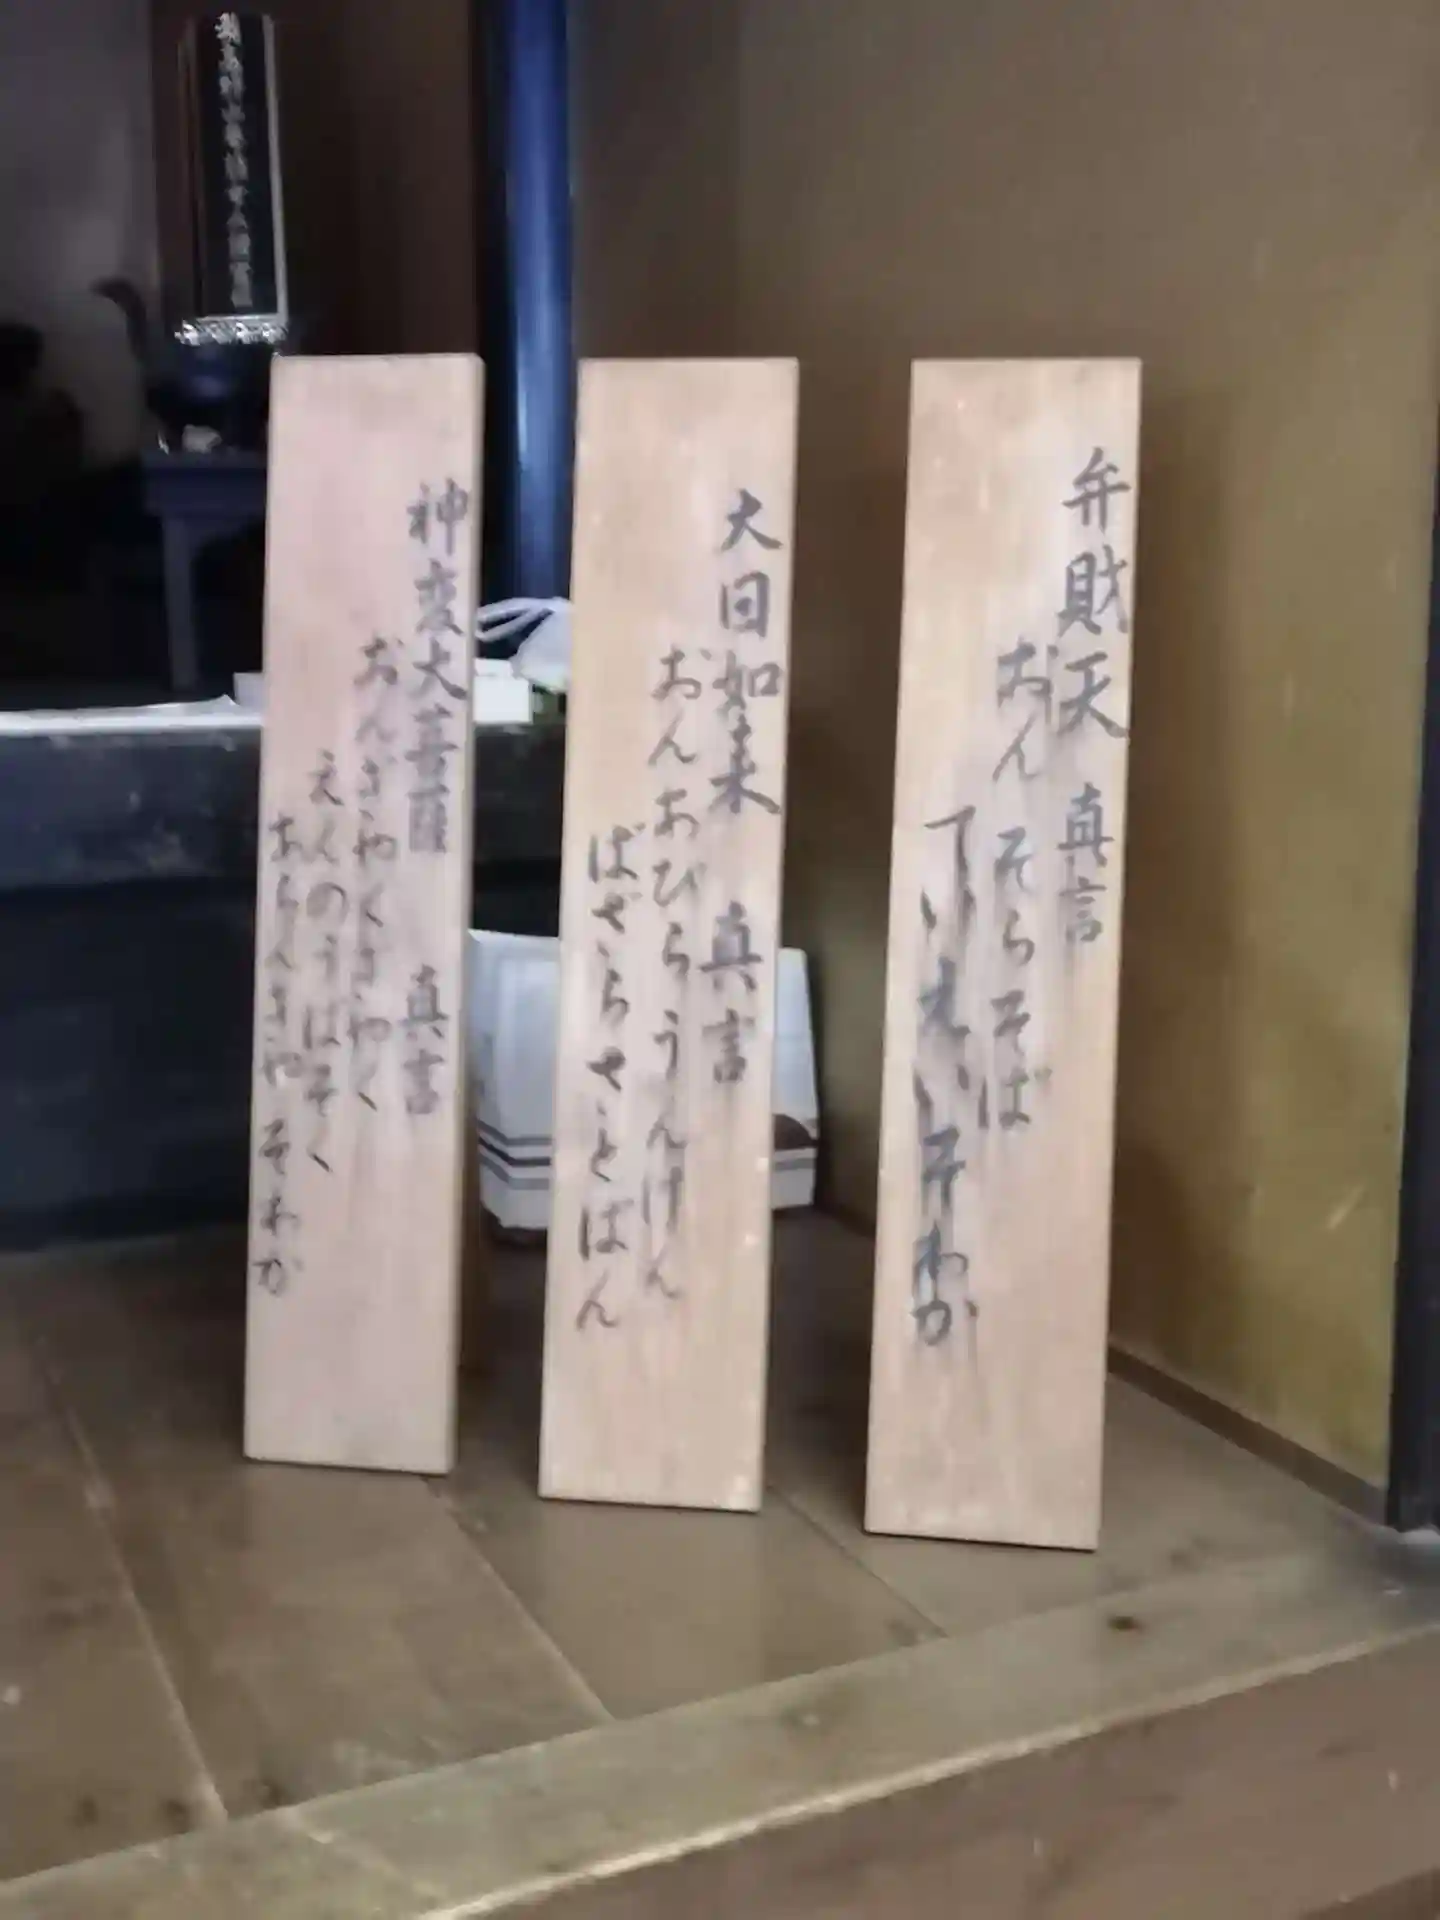 弁財天 真言
おん そらそば
てい えい そわか
大日如来 真言
おんあびらうんけん
ばざらさとばん
神変大菩薩 真言
おんぎやくぎやく
えんのうばそく
あらんきや そわか